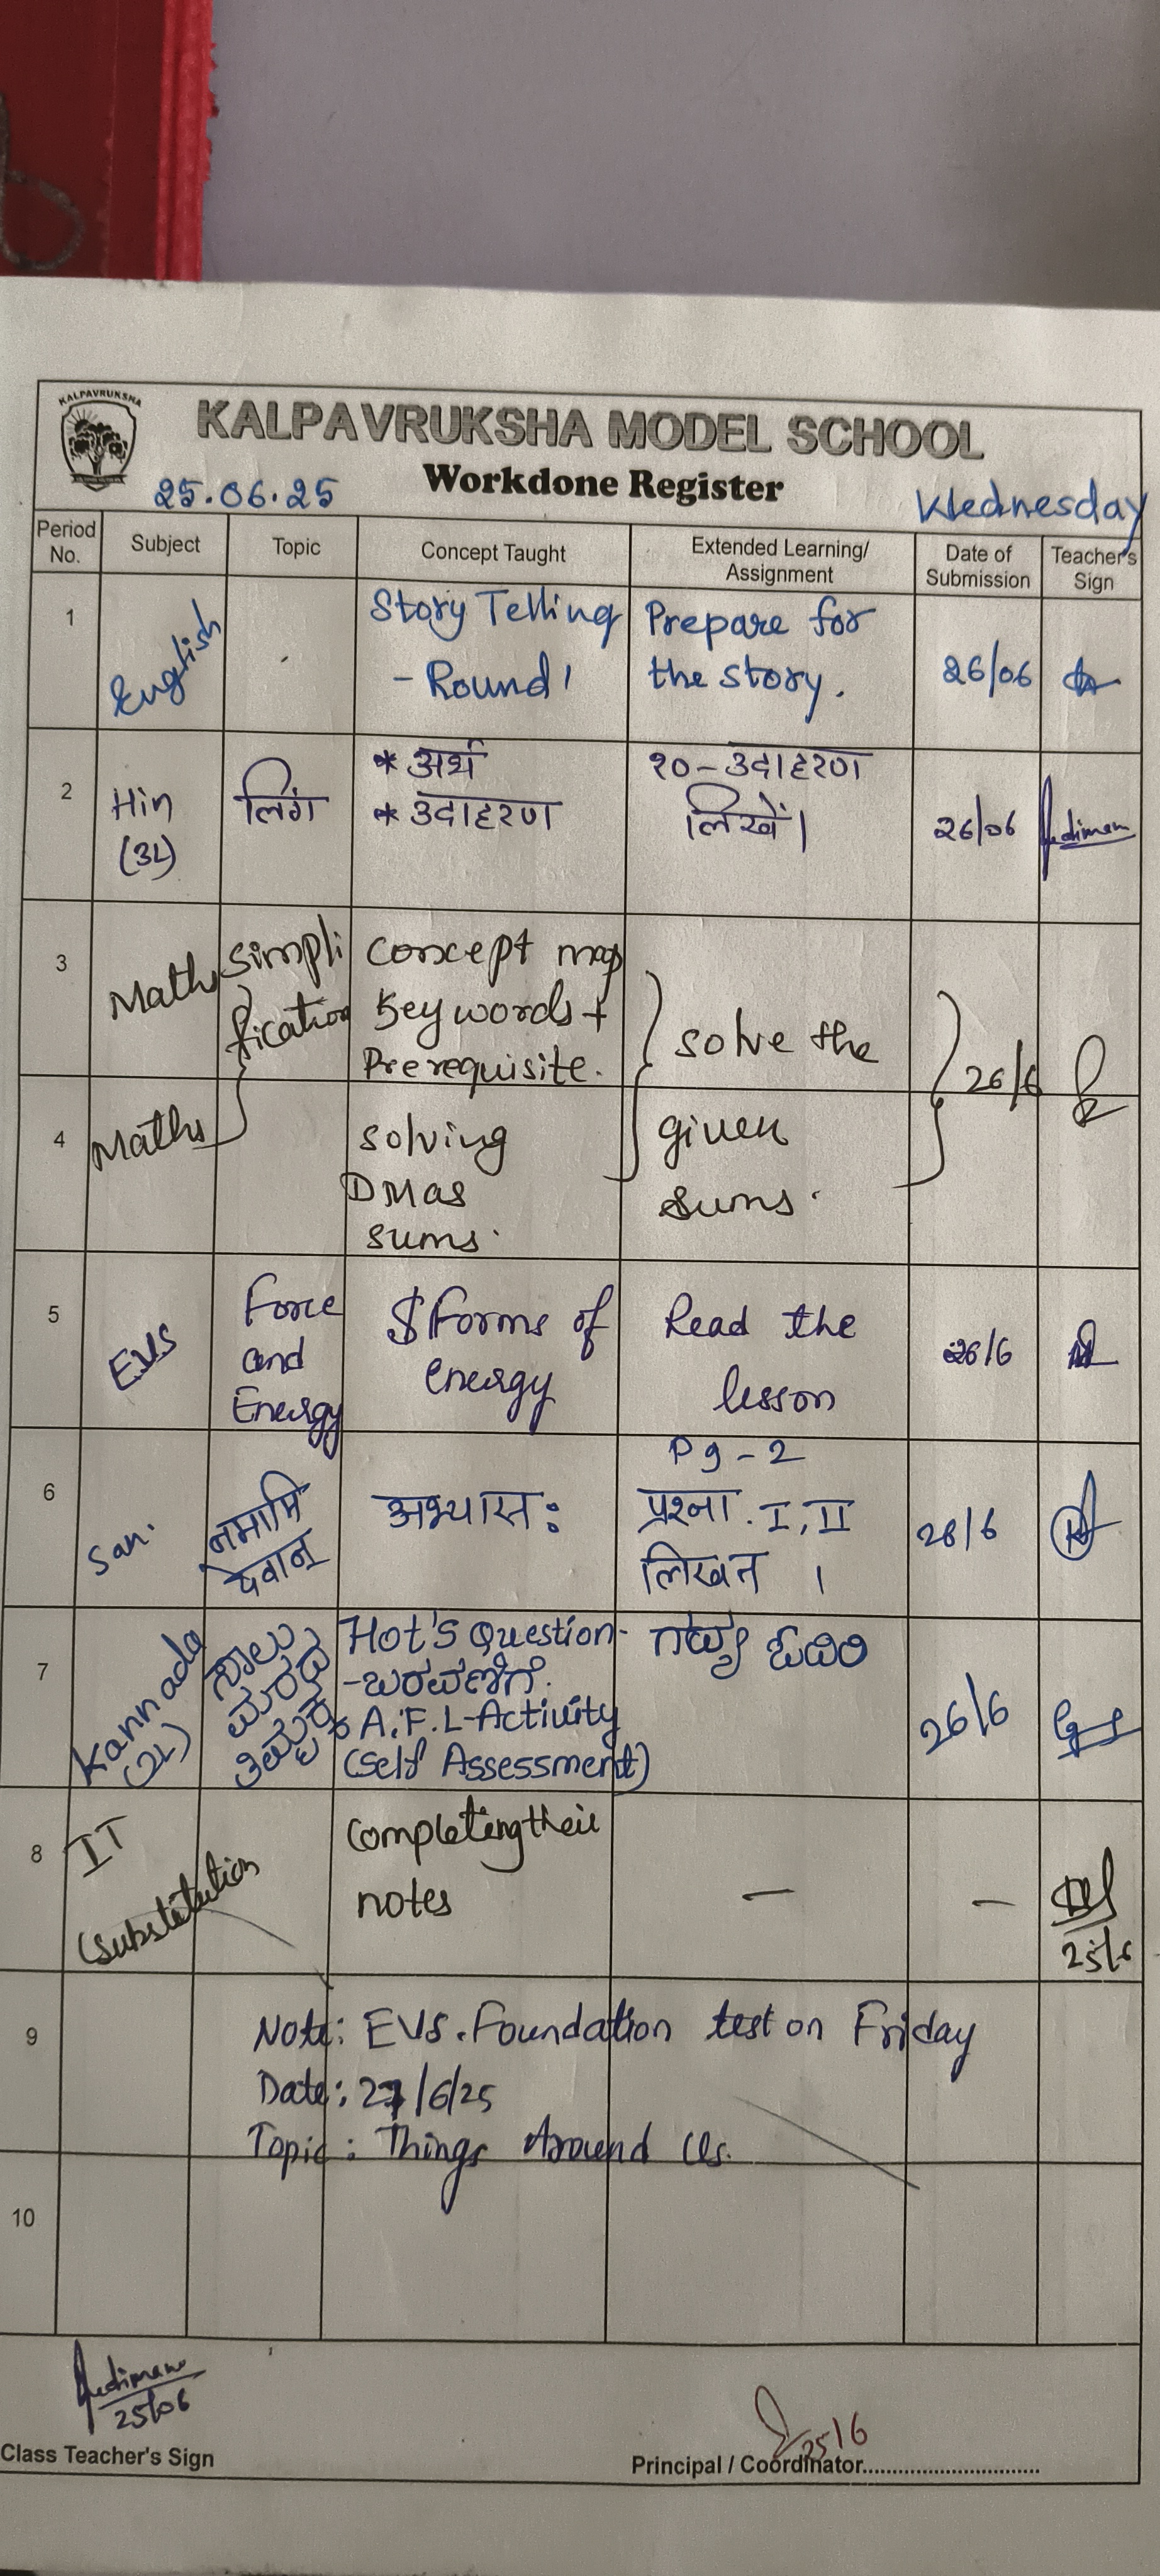 KALPAVRUKSHA
KALPAVRUKSHA MODEL SCHOOL
Workdone Register
25.06.25
Wednesday
Period No.
Subject
Topic
Concept Taught
Extended Learning/
Assignment
Date of
Submission
Teacher's
Sign
1
English
Story Telling
- Round 1
Prepare for
the story.
26/06
2
Hin
(3L)
लिंग
* अर्थ
* उदाहरण
१०-उदाहरण
लिखें।
26/06
3
Maths
Simpli
fication
Concept map
Key words +
Prerequisite.
solve the
26/6
4
Maths
solving
DMas
sums.
given
sums.
5
EVS
Force
and
Energy
Forms of
energy
Read the
lesson
26/6
6
San.
नमामि
देवान्
अभ्यासः
Pg-2
प्रश्ना. I, II
लिखन ।
28/6
7
Kannada
(2L)
ಸಾಲು
ಮರದ
ತಿಮ್ಮಕ್ಕ
Hot's Question-
-ಬರವಣಿಗೆ.
A.F.L-Activity
(Self Assessment)
ಗದ್ಯ ಓದಿರಿ
26/6
8
IT
(substitution
Completing their
notes
-
-
25/6
9
Note: EVS. Foundation test on Friday
Date: 27/6/25
Topic: Things Around Us.
10
25/06
Class Teacher's Sign
25/6
Principal / Coordinator..............................